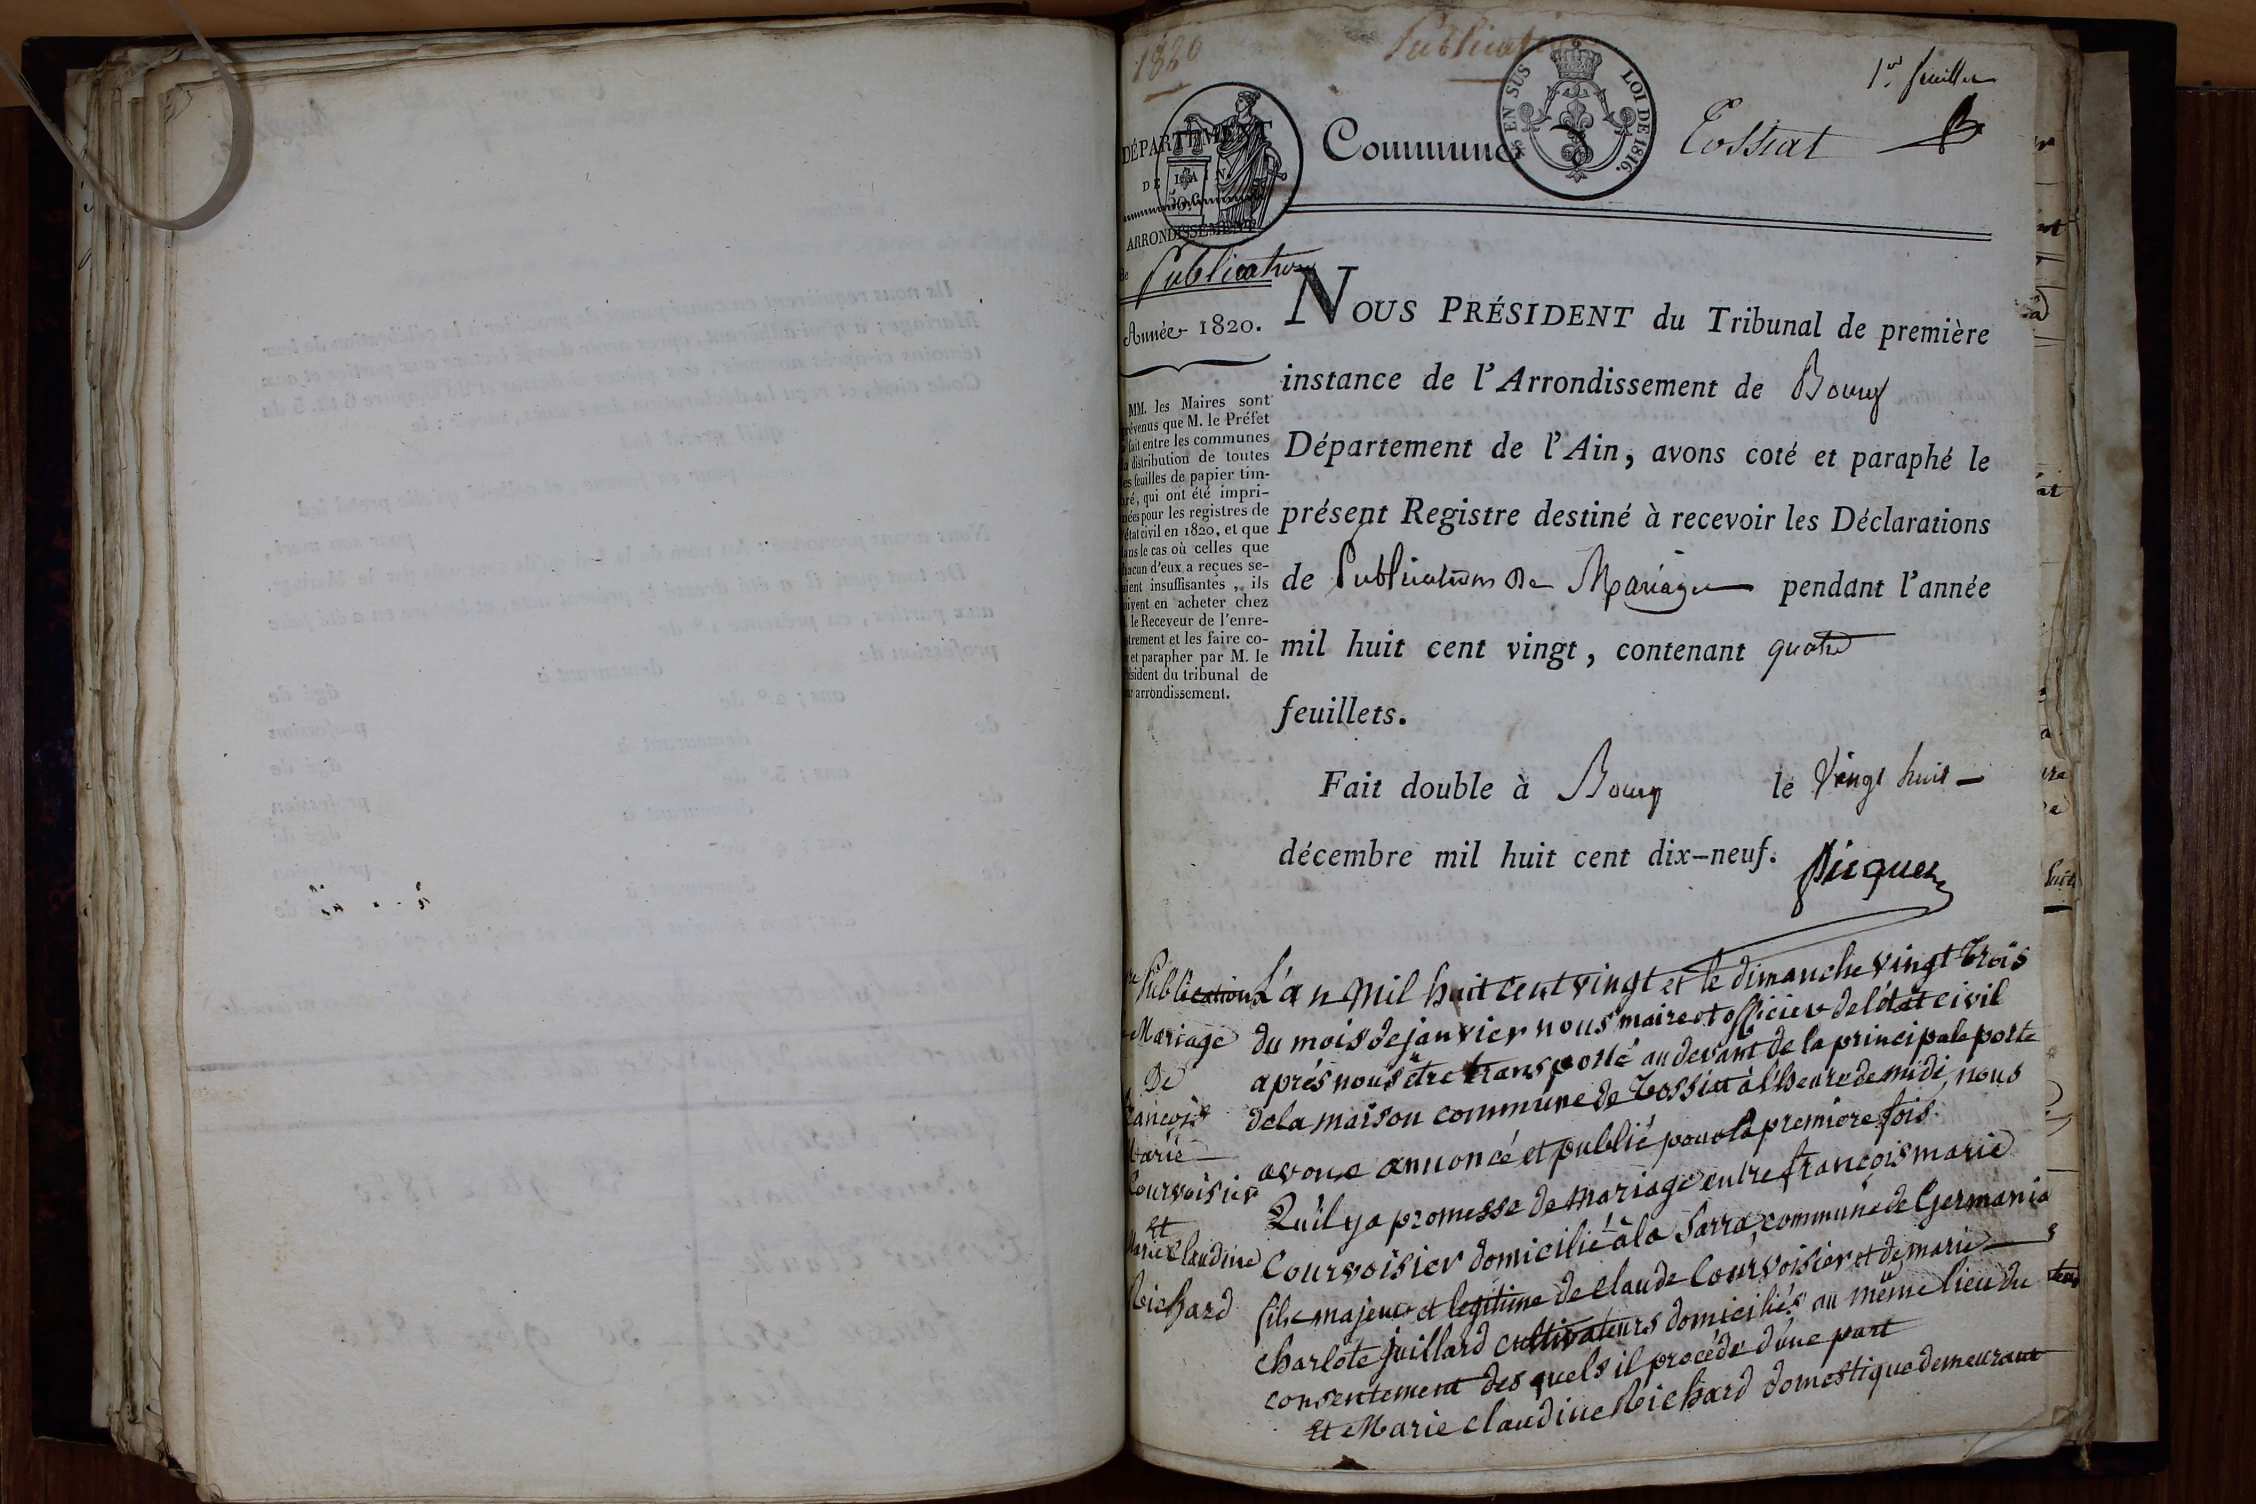 1820
Publication
1er feuillet
DÉPARTEMENT
DE L'AIN.
ARRONDISSEMENT
de Publication
Année 1820.
MM. les Maires sont
prévenus que M. le Préfet
a fait entre les communes
la distribution de toutes
les feuilles de papier tim-
bré, qui ont été impri-
mées pour les registres de
l'état civil en 1820, et que
dans le cas où celles que
chacun d'eux a reçues se-
raient insuffisantes, ils
doivent en acheter chez
M. le Receveur de l'enre-
gistrement et les faire co-
ter et parapher par M. le
Président du tribunal de
leur arrondissement.
Commune de Tossiat
EN SUS LOI DE 1816.
NOUS PRÉSIDENT du Tribunal de première
instance de l'Arrondissement de Bourg
Département de l'Ain, avons coté et paraphé le
présent Registre destiné à recevoir les Déclarations
de Publications De Mariage pendant l'année
mil huit cent vingt, contenant quatre
feuillets.
Fait double à Bourg le Vingt huit
décembre mil huit cent dix-neuf.
Picquet
Publication
Mariage
De
françois
Marie
Courvoisier
Et
Marie Claudine
Richard
L'an mil huit cent vingt et le dimanche vingt trois
du mois de janvier nous maire et officier de l'état civil
aprés nous être transporté au devant de la principale porte
de la maison commune de Tossiat à l'heure de midi, nous
avons annoncé et publié pour la premiere fois
Qu'il y a promesse de mariage entre françois marie
Courvoisier domicilié à la Sarra, commune de Germania
fils majeur et legitime de Claude Courvoisier et de marie
charlote juillard cultivateurs domiciliés au même lieu du
consentement des quels il procéde d'une part
Et Marie claudine Richard domestique demeurant